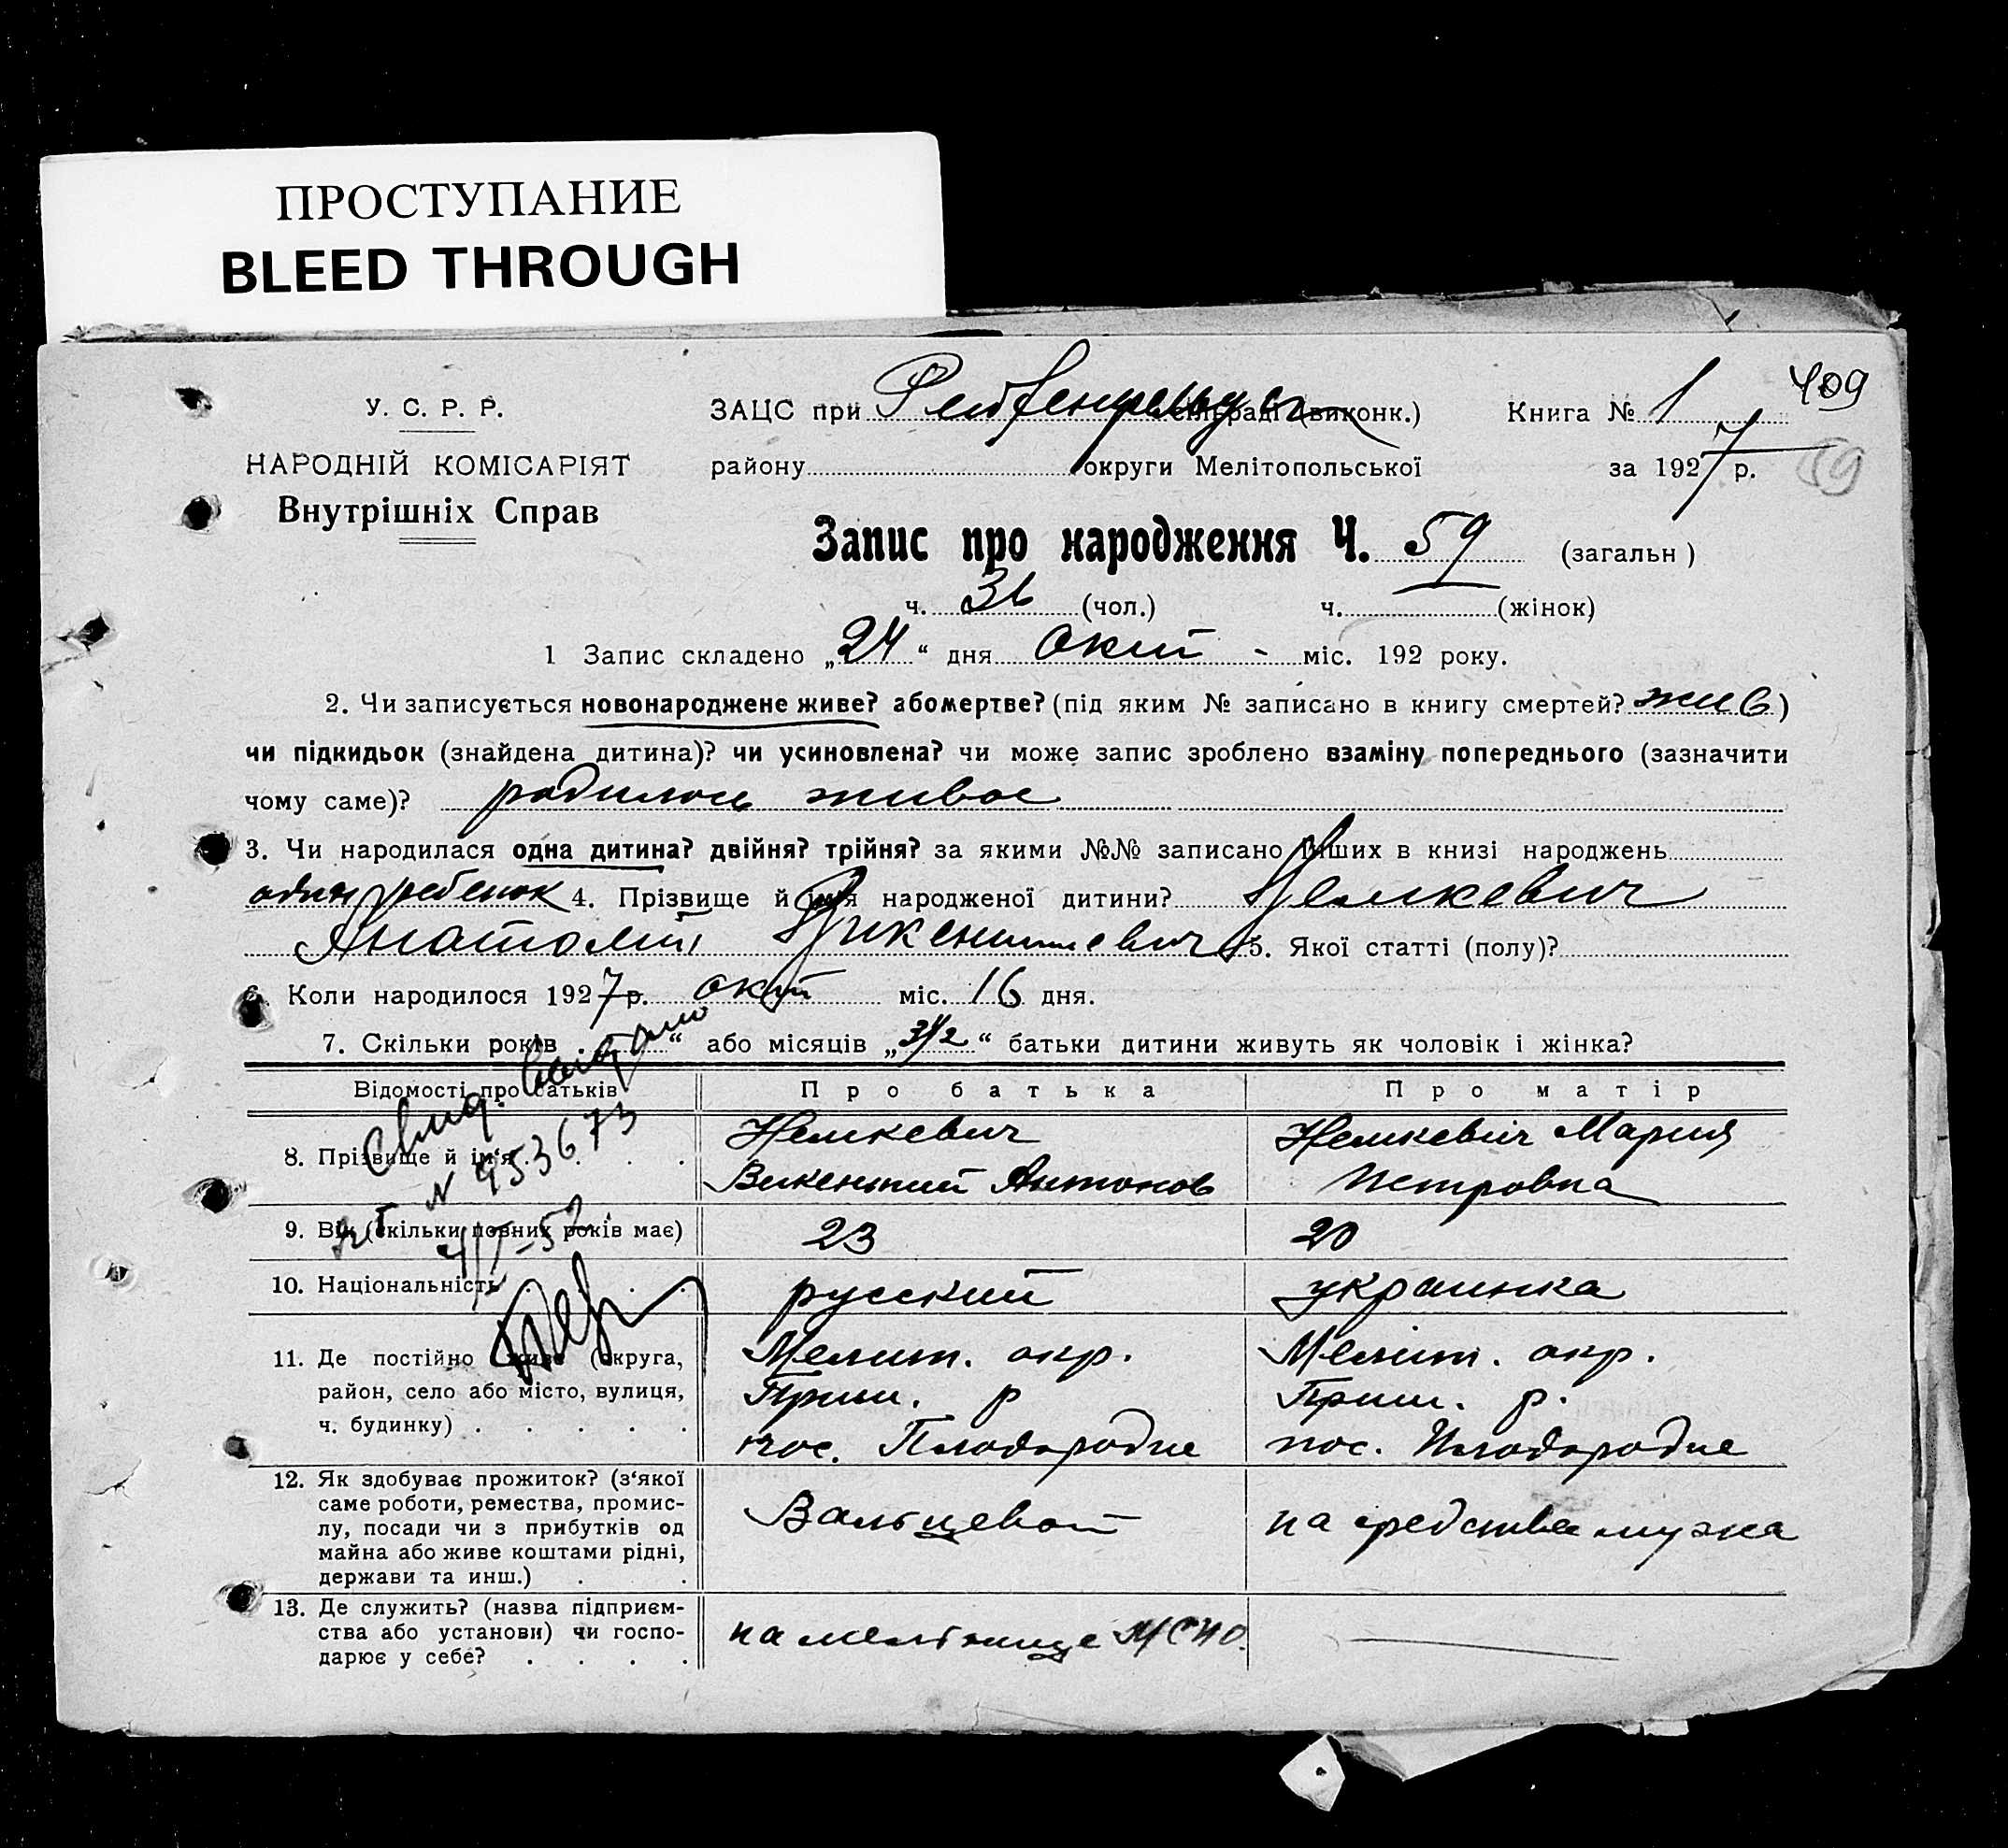 ПРОСТУПАНИЕ
BLEED THROUGH
409
У. С. Р. Р.
НАРОДНІЙ КОМІСАРІЯТ
Внутрішніх Справ
ЗАЦС при сільраді (виконк.) Книга № 1
району округи Мелітопольської за 1927 р.
59
Запис про народження Ч. 59 (загальн)
ч. 36 (чол.) ч. (жінок)
1 Запис складено „24“ дня окт - міс. 192 року.
2. Чи записується новонароджене живе? або мертве? (під яким № записано в книгу смертей? жив)
чи підкидьок (знайдена дитина)? чи усиновлена? чи може запис зроблено взаміну попереднього (зазначити
чому саме)? родилось живое
3. Чи народилася одна дитина? двійня? трійня? за якими №№ записано інших в книзі народжень
один ребенок 4. Прізвище й ім'я народженої дитини? Немкевич
Анатолий Викентиевич 5. Якої статті (полу)?
6. Коли народилося 1927 р. окт міс. 16 дня.
7. Скільки років „ “ або місяців „3 1/2“ батьки дитини живуть як чоловік і жінка?
Відомості про батьків Про батька Про матір
8. Прізвище й ім'я Немкевич Викентий Антонов Немкевич Мария Петровна
9. Вік (скільки повних років має) 23 20
10. Національність русский украинка
11. Де постійно живе (округа, район, село або місто, вулиця, ч. будинку) Мелит. окр. Приш. р пос. Плодородие Мелит. окр. Приш. р. пос. Плодородие
12. Як здобуває прожиток? (з'якої саме роботи, ремества, промислу, посади чи з прибутків од майна або живе коштами рідні, держави та инш.) Вальцевой на средства мужа
13. Де служить? (назва підприємства або установи) чи господарює у себе? на мельнице
Свид.
N 953673